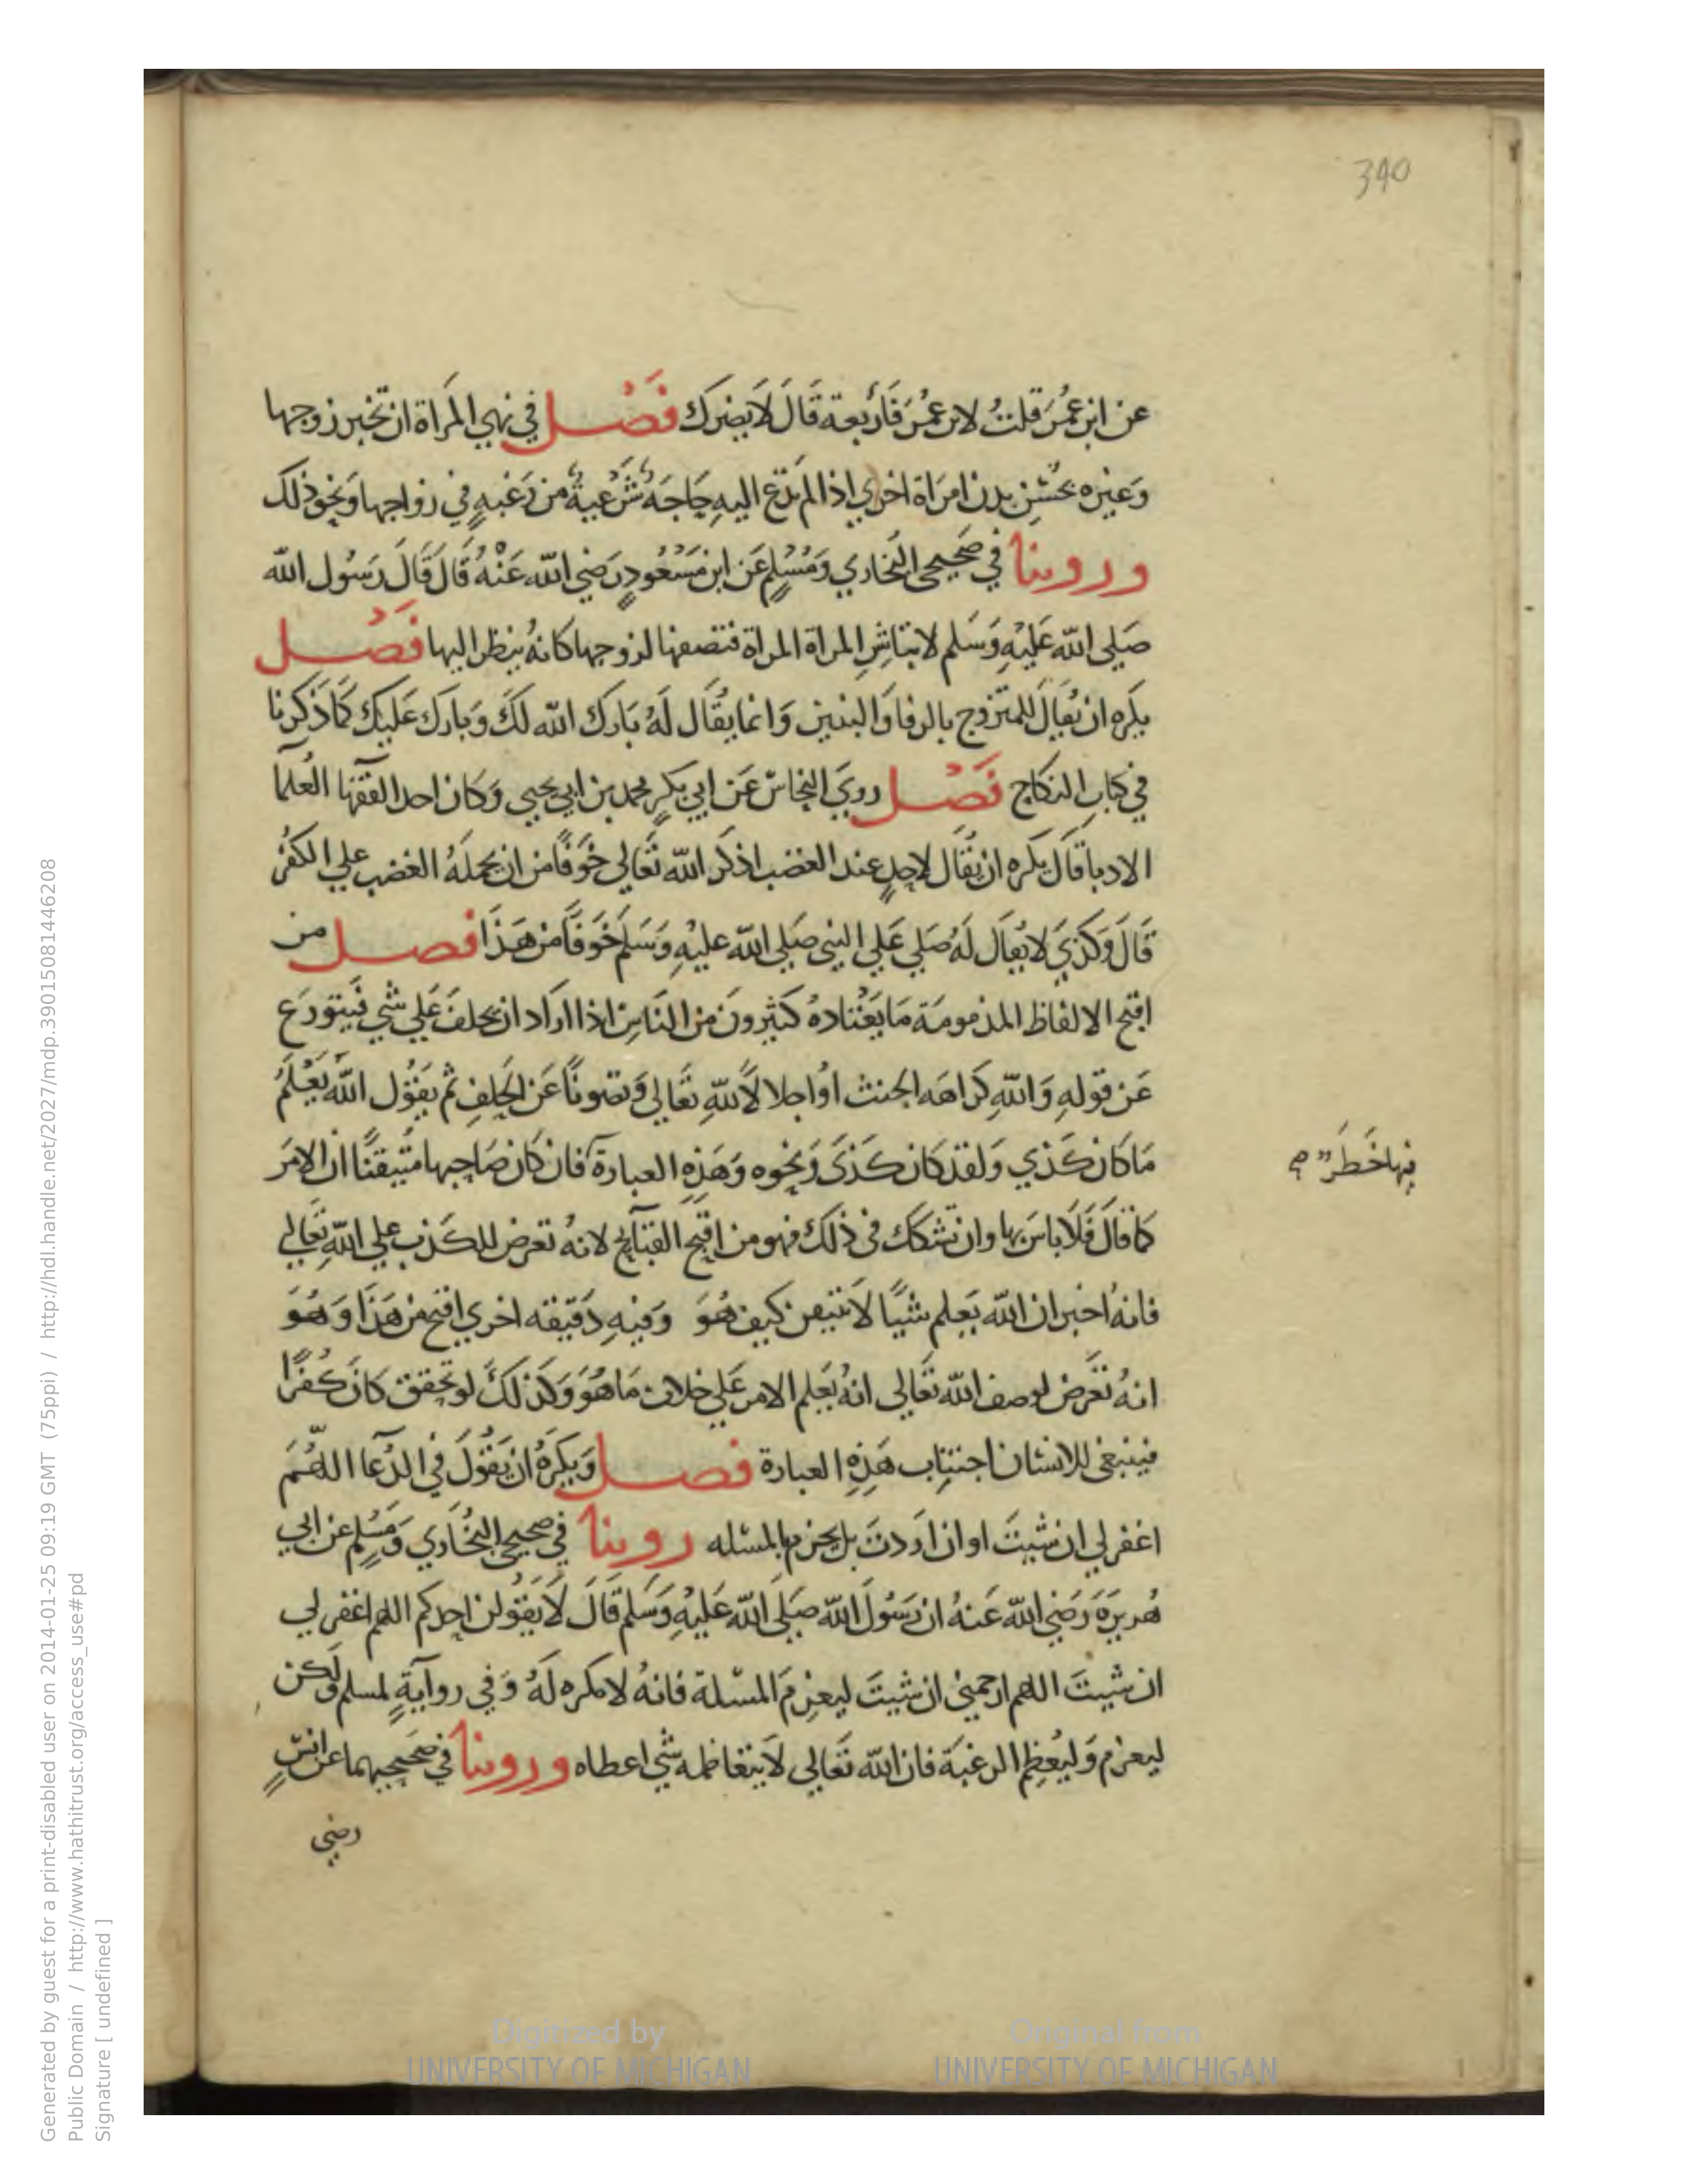 340
عن ابن عُمَر قلتُ لابن عُمَر فَاَرْبعة قَالَ لَا يضرك فَصْل في نهي المَراة ان تخبر زوجها
وَغيره بحُسْنِ بدن امرَاة اخري اذا لم تدع اليهِ حَاجَةٌ شَرْعيةٌ من رَغبهٍ في زواجها وَنحو ذلك
وروينا في صَحيحي البُخاري وَمُسْلِمٍ عَن ابن مَسْعُودٍ رَضي الله عَنْهُ قَالَ قَالَ رَسُول الله
صَلي الله عَليْهِ وَسَلم لا تباشِرِ المراة المراة فتصفها لزوجها كانهُ ينظر اليها فَصْل
يكره ان يُقالَ للمتزوج بالرفا وَالبنين وَانما يقَال لهُ بَارك الله لكَ وَبارك عَليك كمَا ذكَرنا
في كتابِ النكاح فَصْل رويَ النحاسُ عَن ابي بكرٍ محمد بن ابي يحيي وَكان احد الفقهآ العُلمآ
الادبا قَال يكره ان يُقَال لاحدٍ عند الغضب اذكر الله تَعالي خوفًا من ان يحملهُ الغضب علي الكفر
قَالَ وَكذي لا يُقال لهُ صَلي عَلي النبي صَلي الله عليهِ وَسَلم خَوفًا من هَذَا فصل من
اقبح الالفاظ المذمومَة مَا يَعْتادهُ كثيرونَ من النَاسِ اذا اراد ان يحلفَ عَلي شي فيتورَع
عَن قولهِ وَاللهِ كراهَه الحنث اوْ اجلالًا للهِ تعَالي وَتصونًا عَن الحَلِفِ ثم يَقُول اللهُ يَعْلَمُ
مَا كان كَذي وَلقد كان كذَي وَنحوه وَهَذِهِ العبارة فان كان صَاحبها مُتيقنًا ان الامرَ
كمَا قالَ فَلَا باسَ بها وان تشكك في ذلك فهو من اقبَح القبَآيح لانهُ تعرض للكذب علي اللهِ تَعَالي
فيها خَطَرٌ صح
فانهُ اخبر ان الله يَعلم شيًا لَا يتيقن كيف هُوَ وَفيهِ دَقيقه اخري اقبح من هَذا وَهُوَ
انهُ تعَرض لوصف الله تعَالي انهُ يَعلم الامر عَلي خلاف مَا هُوَ وَكذلكَ لو تحقق كانَ كُفرًا
فينبغي للانسان اجتناب هَذِهِ العبارة فصل وَيكرَهُ ان يَقُولَ في الدُعآ اللهُمَ
اغفر لي ان شيتَ او ان اردتَ بل يجزم بالمسئله روينا في صحيحي البُخَاري وَمُسْلِمٍ عن ابي
هُريرَةَ رَضي الله عَنهُ ان رَسُولَ الله صَلي الله عَليْهِ وَسَلم قَالَ لَا يَقولن احدكم اللهم اغفر لي
ان شيتَ اللهم ارحمني ان شيتَ ليعزِم المسئلة فانهُ لا مكره لهُ وَفي روايةٍ لمسلم وَلكن
ليعزم وَليُعظم الرغبَة فان الله تعَالي لَا يتعاظمه شي اعطاه وروينا في صَحيحيهما عن انسٍ
رضي
Digitized by UNIVERSITY OF MICHIGAN
Original from UNIVERSITY OF MICHIGAN
Generated by guest for a print-disabled user on 2014-01-25 09:19 GMT (75ppi) / http://hdl.handle.net/2027/mdp.39015081446208
Public Domain / http://www.hathitrust.org/access_use#pd
Signature [ undefined ]